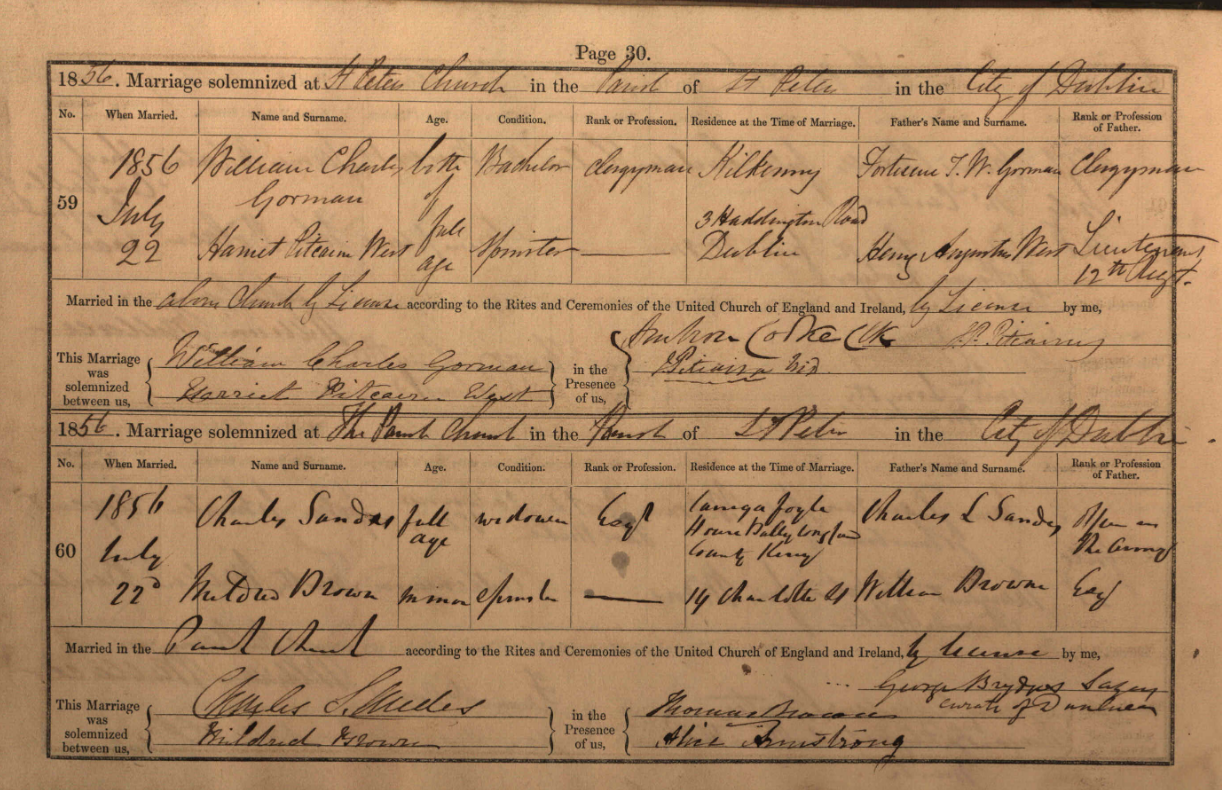 Page 30.
1856. Marriage solemnized at St Peters Church in the Parish of St Peter in the City of Dublin
No. When Married. Name and Surname. Age. Condition. Rank or Profession. Residence at the Time of Marriage. Father's Name and Surname. Rank or Profession of Father.
59 1856 July 22 William Charles Gorman both of full age Bachelor Clergyman Kilkenny T. W. Gorman Clergyman
Harriet Pitcairn West Spinster 3 Haddington Road Dublin Henry Augustus West Lieutenant 12th Regt.
Married in the above Church by License according to the Rites and Ceremonies of the United Church of England and Ireland, by License by me,
Pitcairn
This Marriage was solemnized between us, William Charles Gorman in the Presence of us, Ambrose Cooke Clk
Harriet Pitcairn West Pitcairn
1856. Marriage solemnized at The Parish Church in the Parish of St Peter in the City of Dublin
No. When Married. Name and Surname. Age. Condition. Rank or Profession. Residence at the Time of Marriage. Father's Name and Surname. Rank or Profession of Father.
60 1856 July 22d Charles Sandes full age widower Esqr Carrigafoyle House Ballylongford County Kerry Charles L Sandes Officer in the Army
Mildred Brown minor Spinster 14 Charlotte St William Browne Esq
Married in the Parish Church according to the Rites and Ceremonies of the United Church of England and Ireland, by license by me,
George Brydges
curate of
This Marriage was solemnized between us, Charles Sandes in the Presence of us, Thomas
Mildred Brown Alice Armstrong